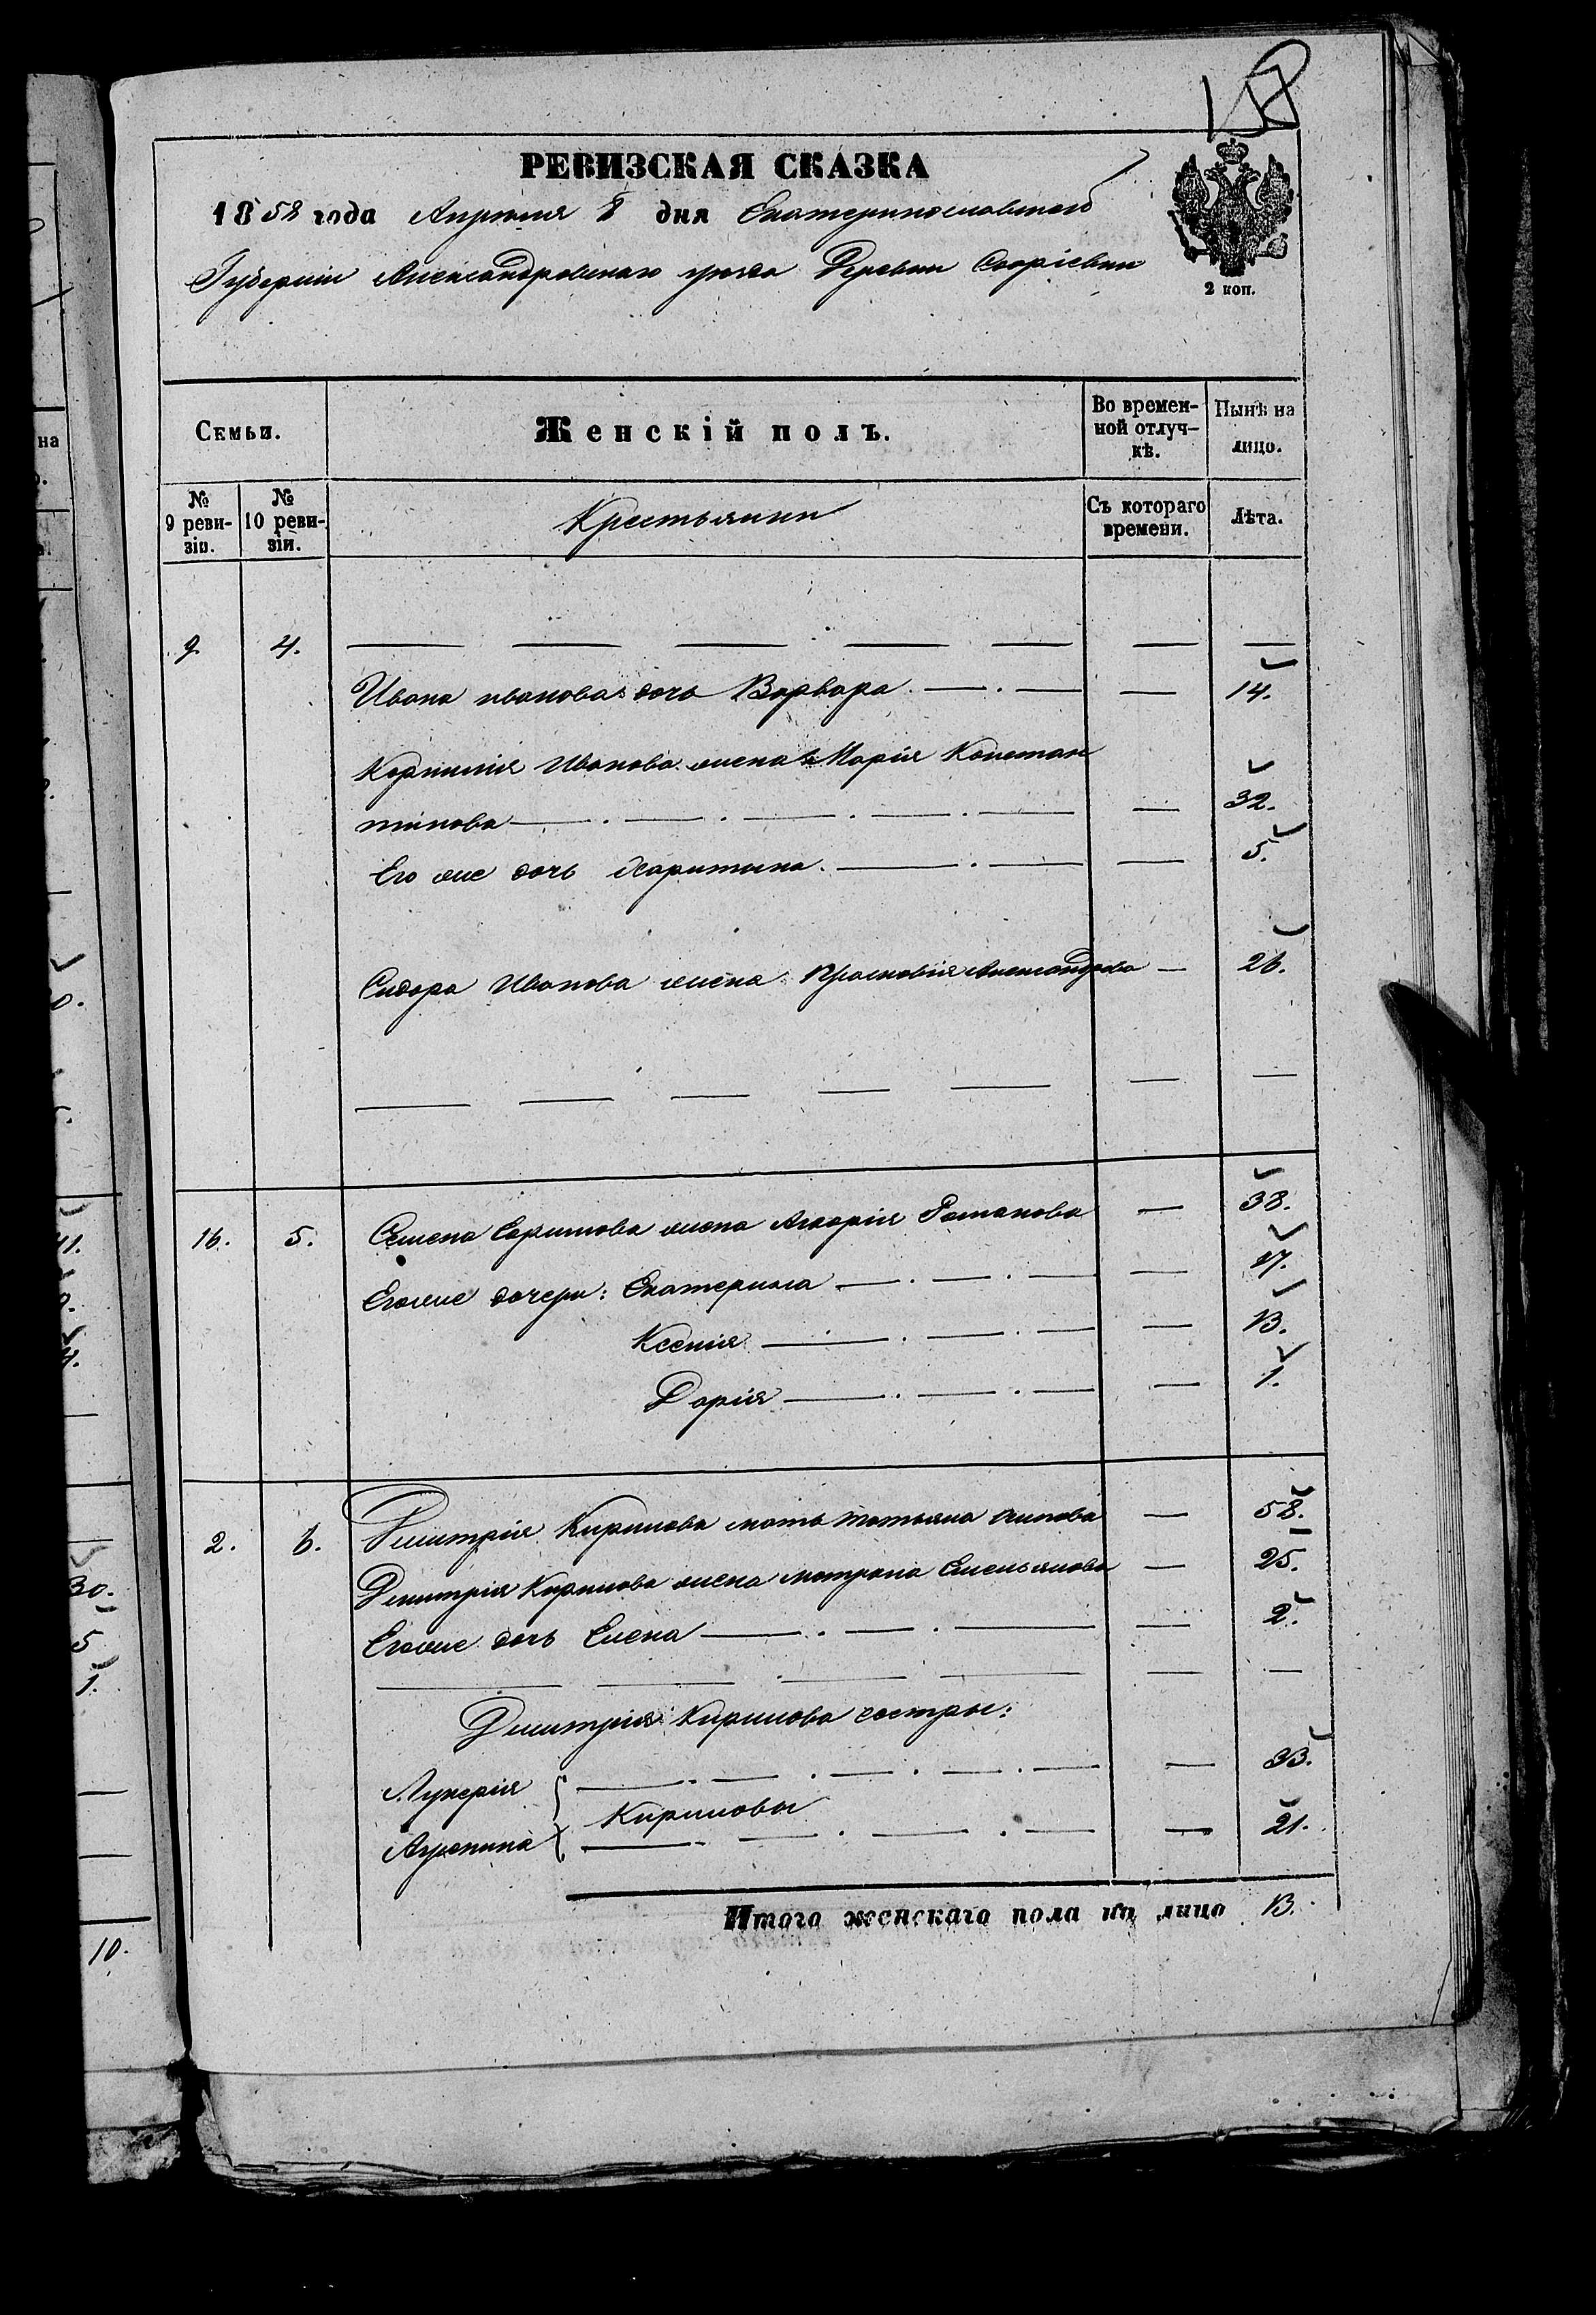 РЕВИЗСКАЯ СКАЗКА
1858 года Апреля 8 дня Екатеринославской
Губерніи Александровскаго уезда Деревни
2 коп.
Семьи.
Женскій полъ.
Во времен-
ной отлуч-
кѣ.
Нынѣ на
лицо.
№
9 реви-
зіи.
№
10 реви-
зіи.
Крестьянки
Съ котораго
времени.
Лѣта.
9. 4. — — — — — — —
Ивана иванова дочь Варвара — . — — 14.
Корнилія Иванова жена Марія Констан
тинова — . — . — . — . — — 32.
Его же дочь Харитина. — . — — 5.
Сидора Иванова жена Прасковія Александрова — 26.
— — — — — — —
16. 5. Семена жена Романова — 38.
Егоже дочери: Екатерина — . — . — — 17.
Ксенія — . — . — — 13.
Дарія — . — . — — 1.
2. 6. Дмитрія Кирилова мать татьяна — 58.
Дмитрія Кирилова жена матрона Емельянова — 25.
Егоже дочь Елена — . — . — — 2.
— — — — — —
Дмитрія Кирилова сестры:
Лукерія — . — . — . — . — — 33.
Кириловы
Акулина — . — . — . — — 21.
Итого женскаго пола на лицо 13.
на
30.
5
1.
10.